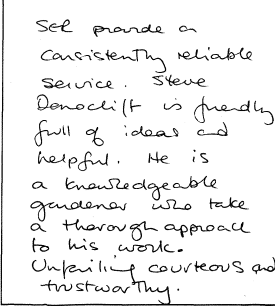 SGR provide a
consistently reliable
service. Steve
is friendly
full of ideas and
helpful. He is
a knowledgeable
gardener who take
a thorough approach
to his work.
Unfailing courteous and
trustworthy.